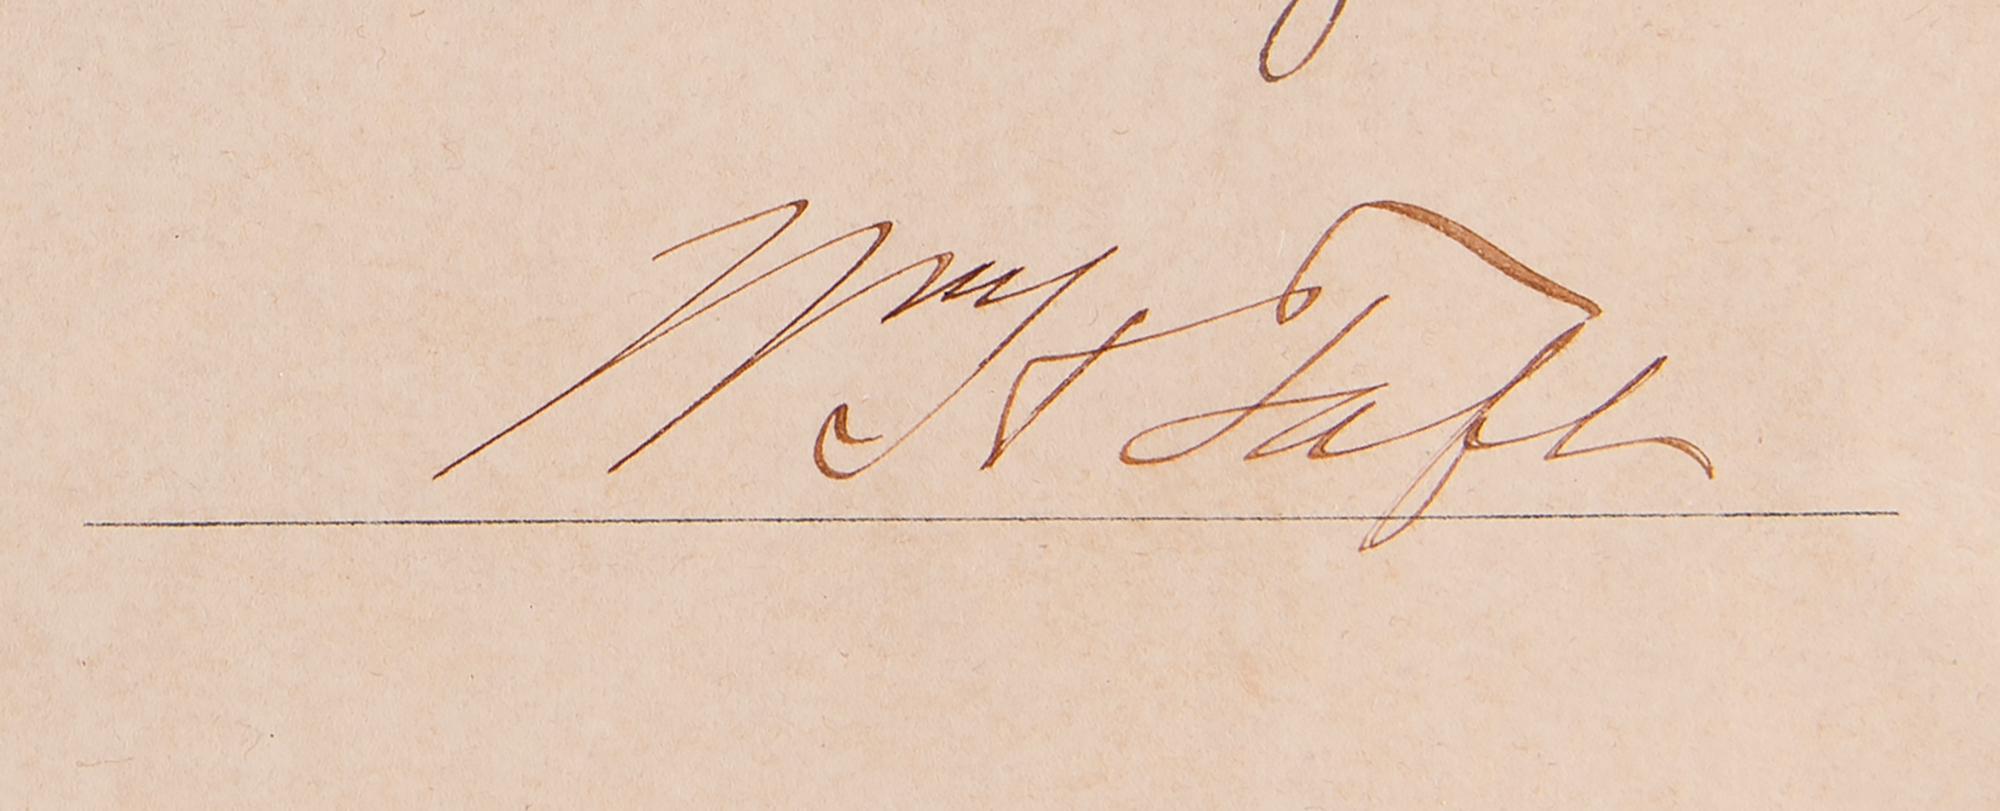 Wm H Taft